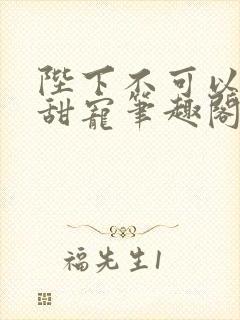 陛下不可以
甜寵筆趣閣
福先生1